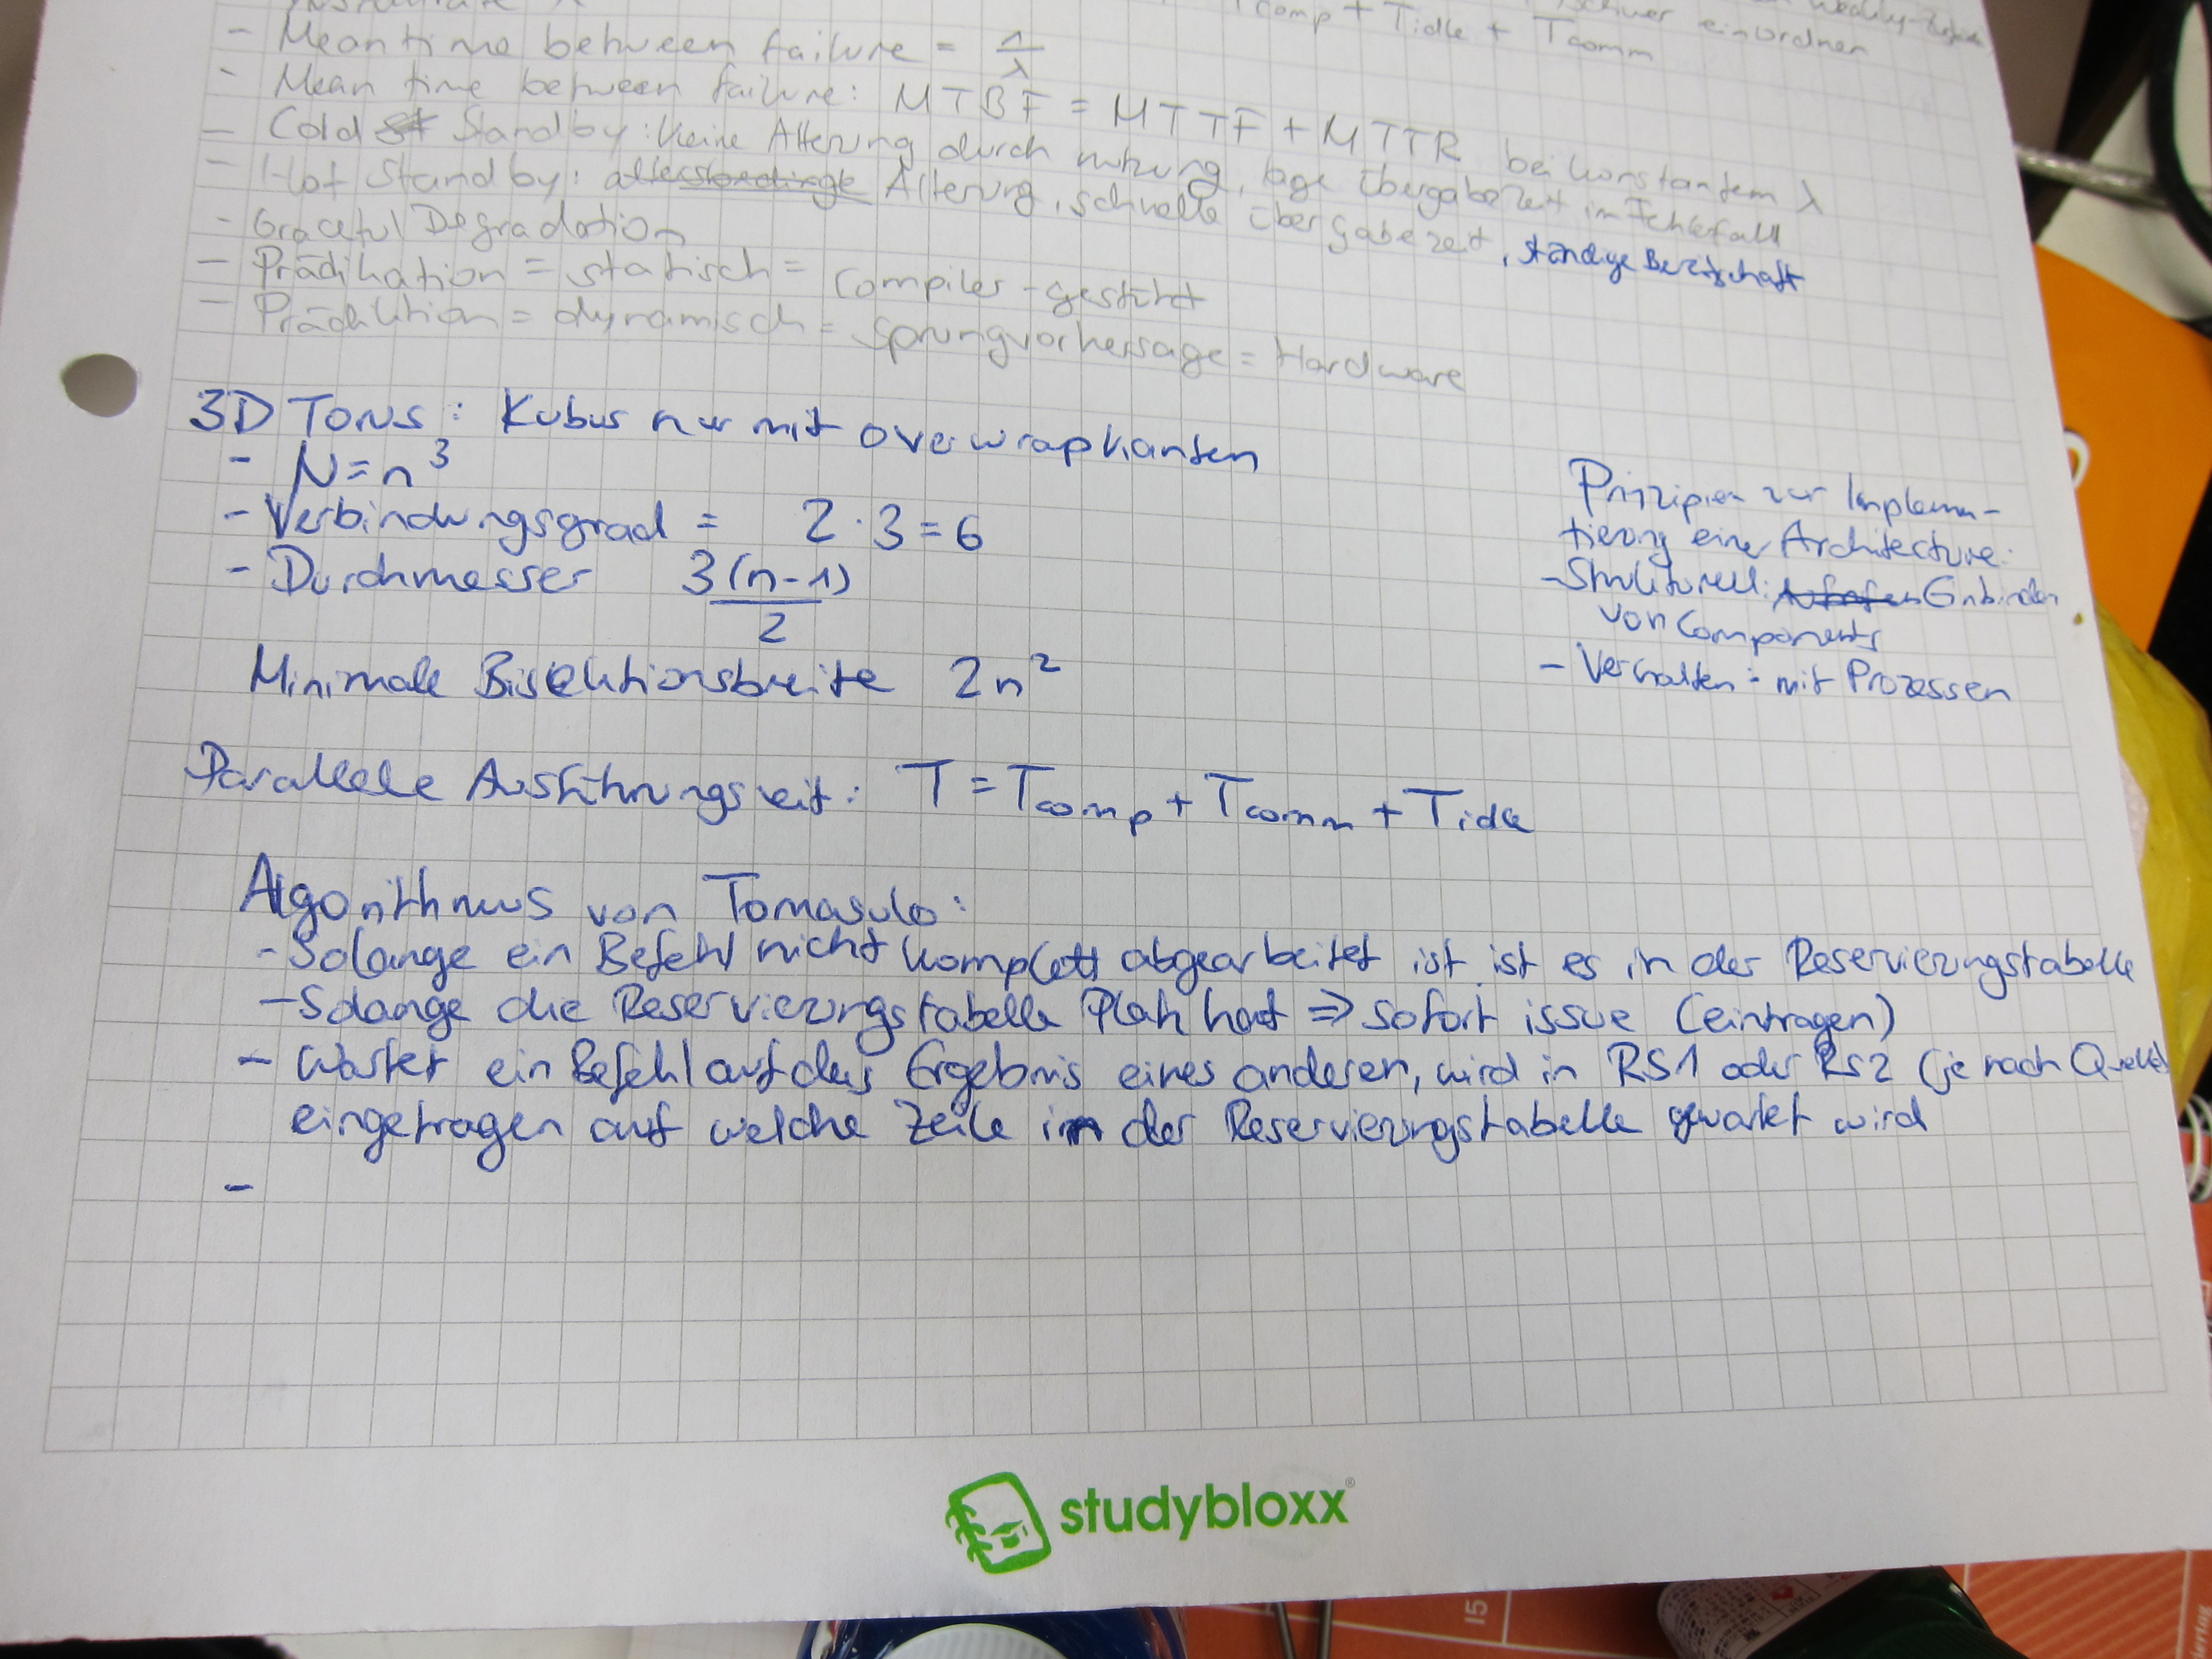 Tcomp + Tidle + Tcomm
schwer einordnen
- Meantime between failure = 1/λ
- Mean time between failure: MTBF = MTTF + MTTR bei konstantem λ
- Cold Standby: Keine Alterung durch nutzung, lage übergabezeit im Fehlerfall
- Hot Standby: altersbedingte Alterung, schnelle übergabezeit, ständige Bereitschaft
- Graceful Degradation
- Prädikation = statisch = Compiler-gestützt
- Prädiktion = dynamisch = Sprungvorhersage = Hardware
3D Torus: Kubus nur mit overwrapkanten
- N = n³
- Verbindungsgrad = 2·3 = 6
- Durchmesser 3(n-1)/2
Minimale Bisektionsbreite 2n²
Prinzipien zur Implemen-
tierung einer Architecture:
- Strukturell: Einbinden
von Components
- Verhalten: mit Prozessen
Parallele Ausführungszeit: T = Tcomp + Tcomm + Tidle
Algorithmus von Tomasulo:
- Solange ein Befehl nicht komplett abgearbeitet ist, ist es in der Reservierungstabelle
- Solange die Reservierungstabelle Platz hat => sofort issue (eintragen)
- Wartet ein Befehl auf das Ergebnis eines anderen, wird in RS1 oder RS2 (je nach Quelle)
eingetragen auf welche Zeile in der Reservierungstabelle gewartet wird
-
studybloxx®
15